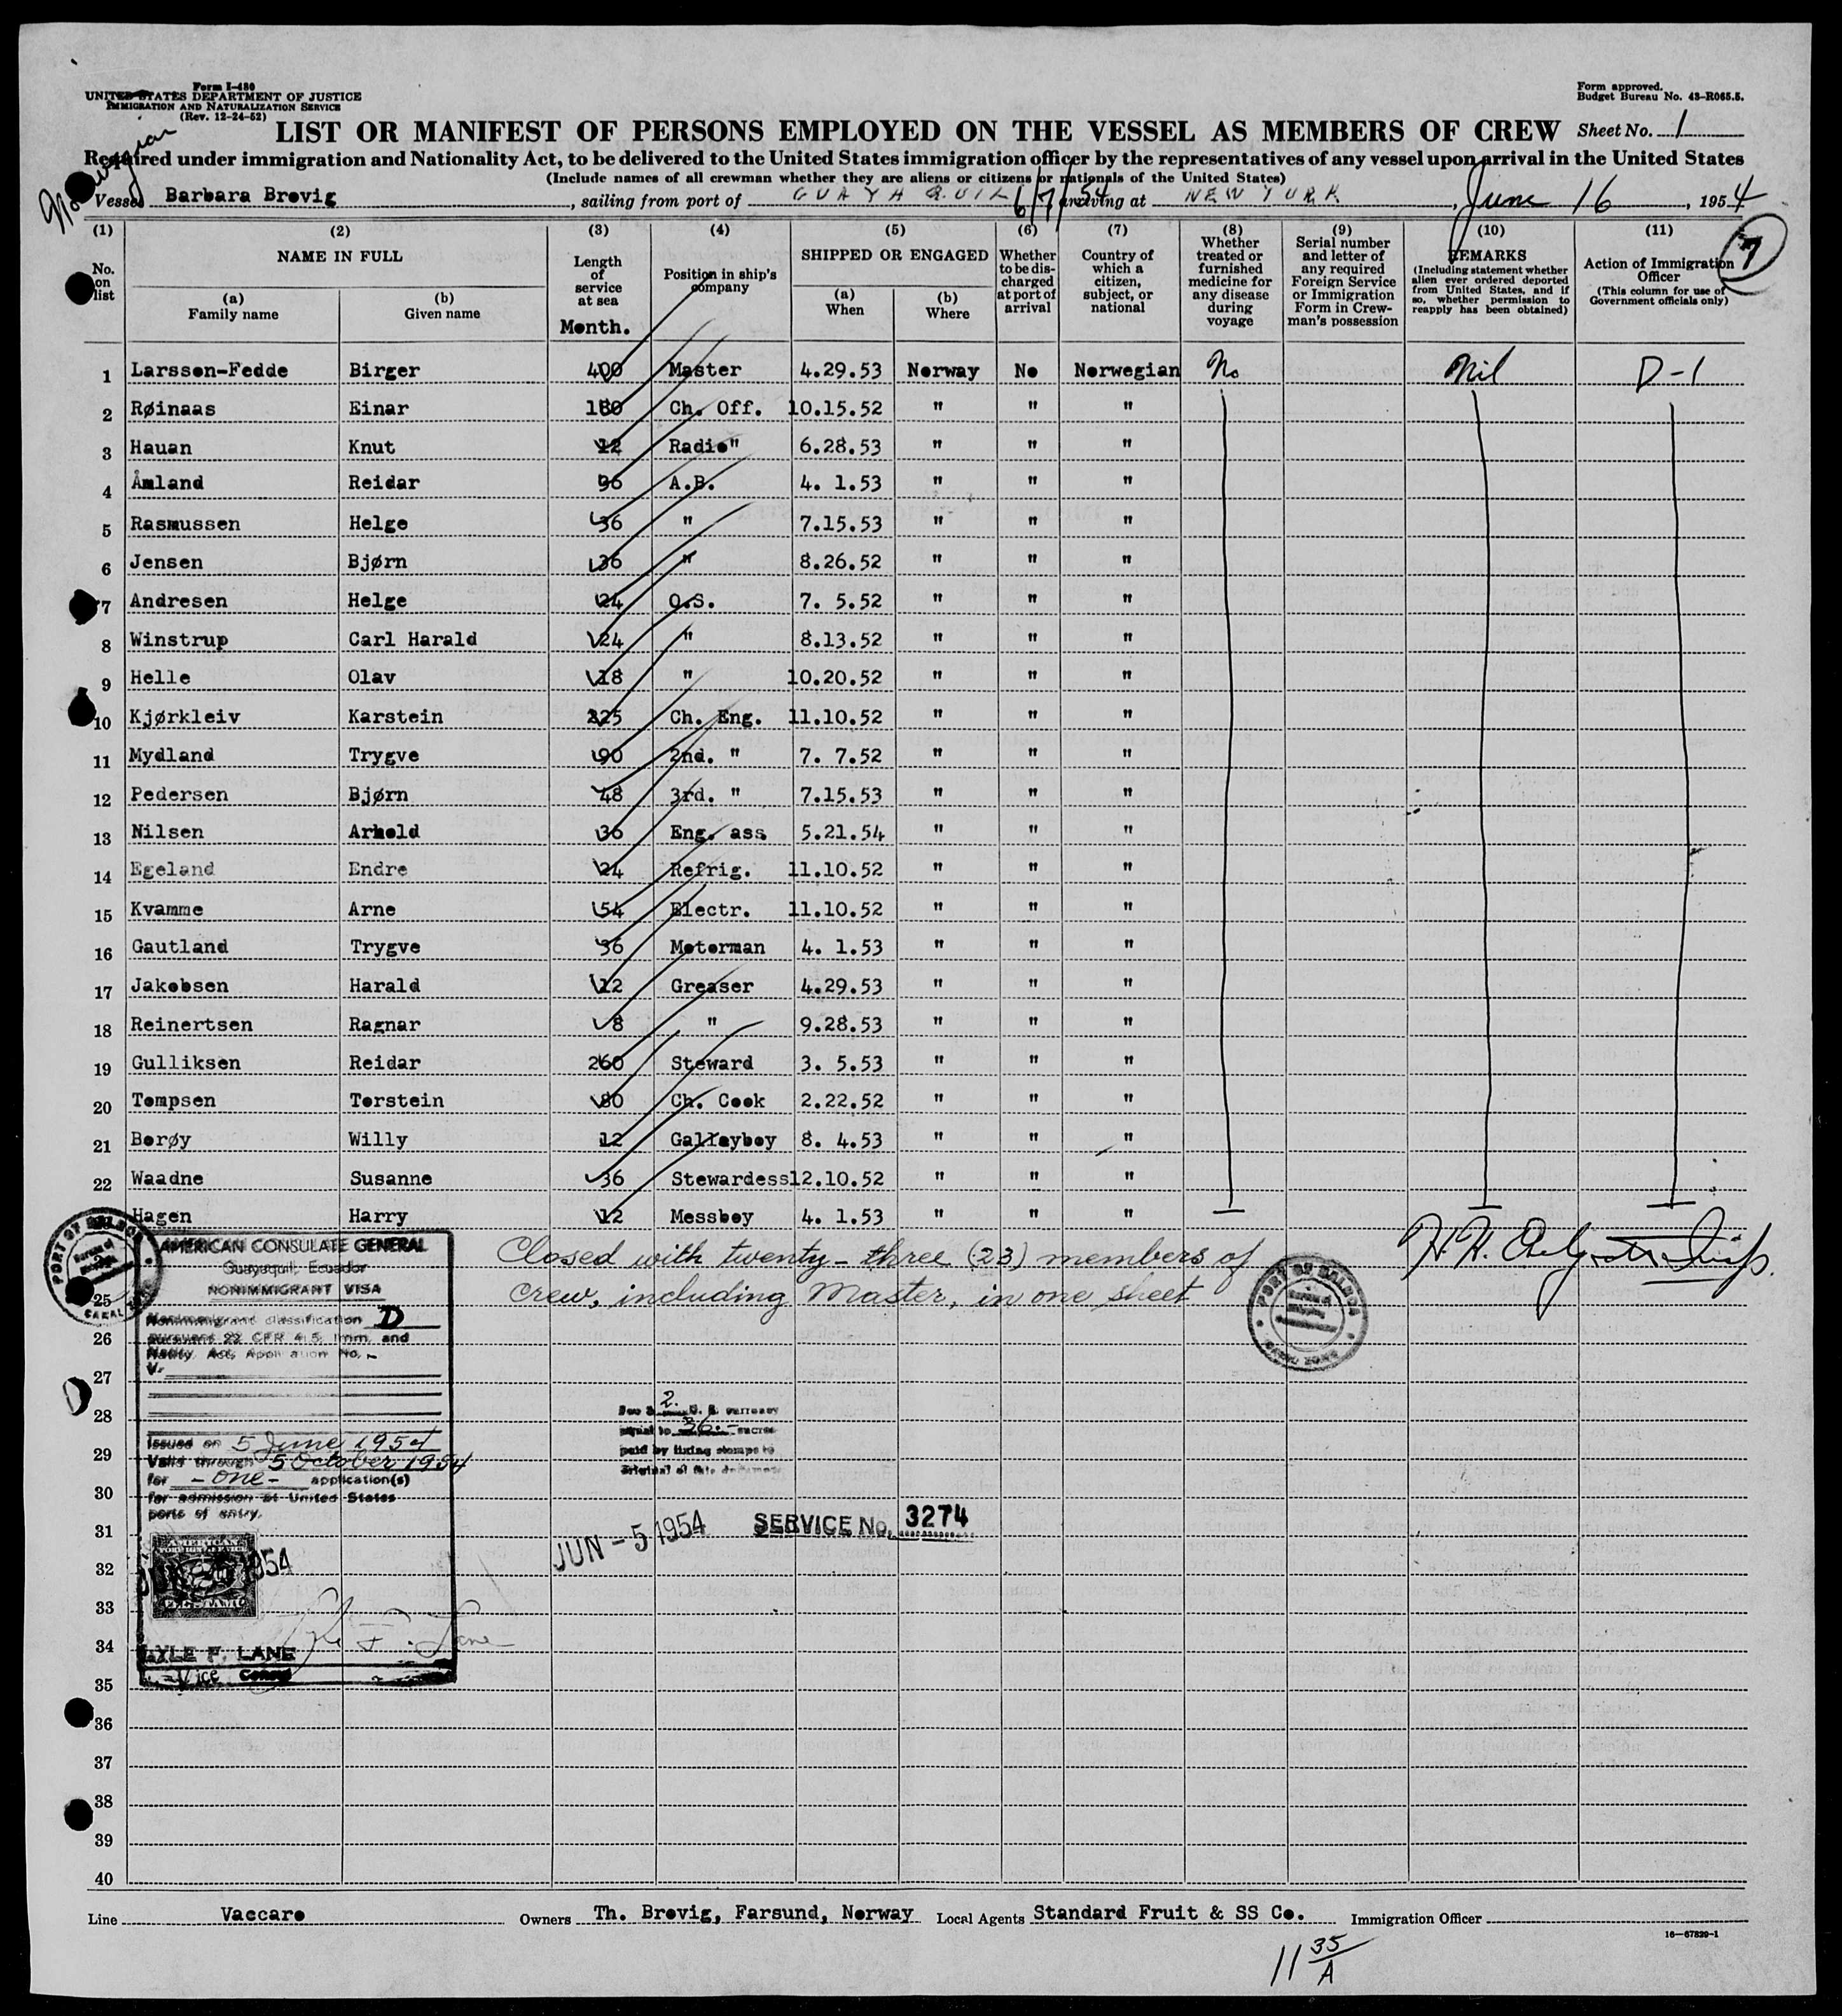 Form I-480
UNITED STATES DEPARTMENT OF JUSTICE
IMMIGRATION AND NATURALIZATION SERVICE
(Rev. 12-24-52)
Form approved.
Budget Bureau No. 43-R065.5.
Norwegian
LIST OR MANIFEST OF PERSONS EMPLOYED ON THE VESSEL AS MEMBERS OF CREW Sheet No. 1
Required under immigration and Nationality Act, to be delivered to the United States immigration officer by the representatives of any vessel upon arrival in the United States
(Include names of all crewman whether they are aliens or citizens or nationals of the United States)
Vessel Barbara Brovig, sailing from port of GUAYAQUIL 6/7/54 arriving at NEW YORK, June 16, 1954
7
(1) (2) (3) (4) (5) (6) (7) (8) (9) (10) (11)
No. on list
NAME IN FULL
(a) Family name
(b) Given name
Length of service at sea
Month.
Position in ship's company
SHIPPED OR ENGAGED
(a) When
(b) Where
Whether to be discharged at port of arrival
Country of which a citizen, subject, or national
Whether treated or furnished medicine for any disease during voyage
Serial number and letter of any required Foreign Service or Immigration Form in Crewman's possession
REMARKS
(Including statement whether alien ever ordered deported from United States, and if so, whether permission to reapply has been obtained)
Action of Immigration Officer
(This column for use of Government officials only)
1 Larsson-Fedde Birger 400 Master 4.29.53 Norway No Norwegian No Nil D-1
2 Røinaas Einar 180 Ch. Off. 10.15.52 " " "
3 Hauan Knut 12 Radio" 6.28.53 " " "
4 Åmland Reidar 96 A.B. 4. 1.53 " " "
5 Rasmussen Helge 36 " 7.15.53 " " "
6 Jensen Bjørn 36 " 8.26.52 " " "
7 Andresen Helge 24 O.S. 7. 5.52 " " "
8 Winstrup Carl Harald 24 " 8.13.52 " " "
9 Helle Olav 18 " 10.20.52 " " "
10 Kjørkleiv Karstein 225 Ch. Eng. 11.10.52 " " "
11 Mydland Trygve 90 2nd. " 7. 7.52 " " "
12 Pedersen Bjørn 48 3rd. " 7.15.53 " " "
13 Nilsen Arnold 36 Eng. ass 5.21.54 " " "
14 Egeland Endre 24 Refrig. 11.10.52 " " "
15 Kvamme Arne 54 Electr. 11.10.52 " " "
16 Gautland Trygve 36 Motorman 4. 1.53 " " "
17 Jakobsen Harald 12 Greaser 4.29.53 " " "
18 Reinertsen Ragnar 8 " 9.28.53 " " "
19 Gulliksen Reidar 260 Steward 3. 5.53 " " "
20 Tompsen Torstein 80 Ch. Cook 2.22.52 " " "
21 Borøy Willy 12 Galleyboy 8. 4.53 " " "
22 Waadne Susanne 36 Stewardess 12.10.52 " " "
Hagen Harry 12 Messboy 4. 1.53 " " "
PORT OF BALBOA
CANAL ZONE
AMERICAN CONSULATE GENERAL
Guayaquil, Ecuador
NONIMMIGRANT VISA
Nonimmigrant classification D
pursuant 22 CFR 4 5 Imm. and
Natity. Act, Application No.
V.
Closed with twenty-three (23) members of
Crew, including Master, in one sheet
PORT OF BALBOA
CANAL ZONE
25
26
27
28
29
30
31
32
33
34
35
36
37
38
39
40
Issued on 5 June 1954
Valid through 5 October 1954
for -one- application(s)
for admission at United States
ports of entry.
Fee $ 2. U. S. currency
equal to 36.- sucres
paid by fixing stamps to
original of this document
JUN -5 1954
SERVICE No. 3274
AMERICAN
FEE STAMP
1954
Lyle F. Lane
LYLE F. LANE
Vice Consul
Line Vaccaro Owners Th. Brovig, Farsund, Norway Local Agents Standard Fruit & SS Co. Immigration Officer
16-67829-1
11 35/A